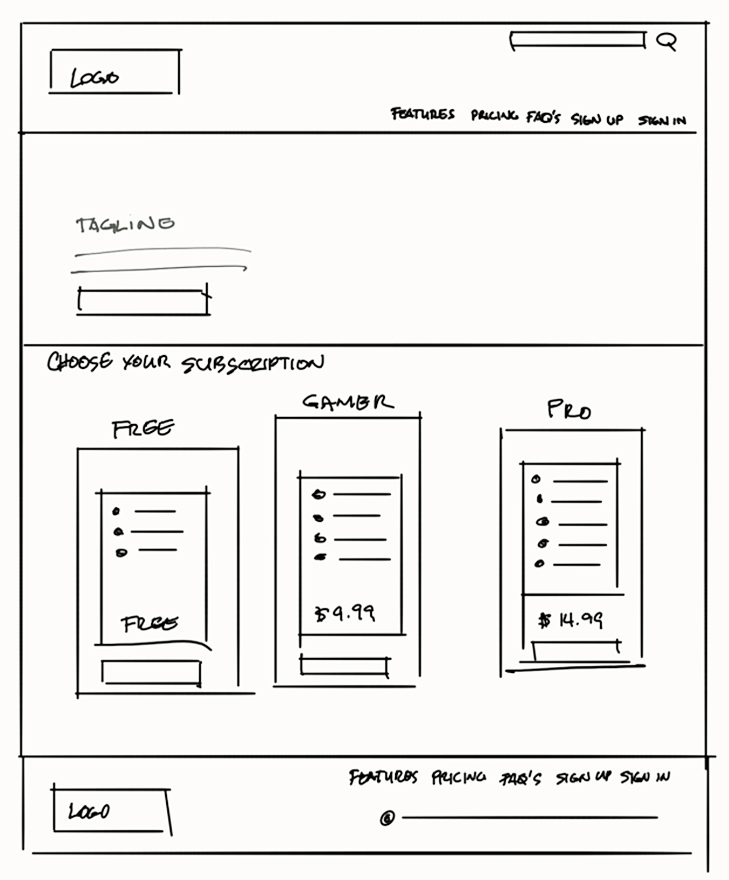 LOGO
FEATURES PRICING FAQ'S SIGN UP SIGN IN
TAGLINE
CHOOSE YOUR SUBSCRIPTION
FREE
GAMER
PRO
FREE
$9.99
$14.99
FEATURES PRICING FAQ'S SIGN UP SIGN IN
LOGO
©